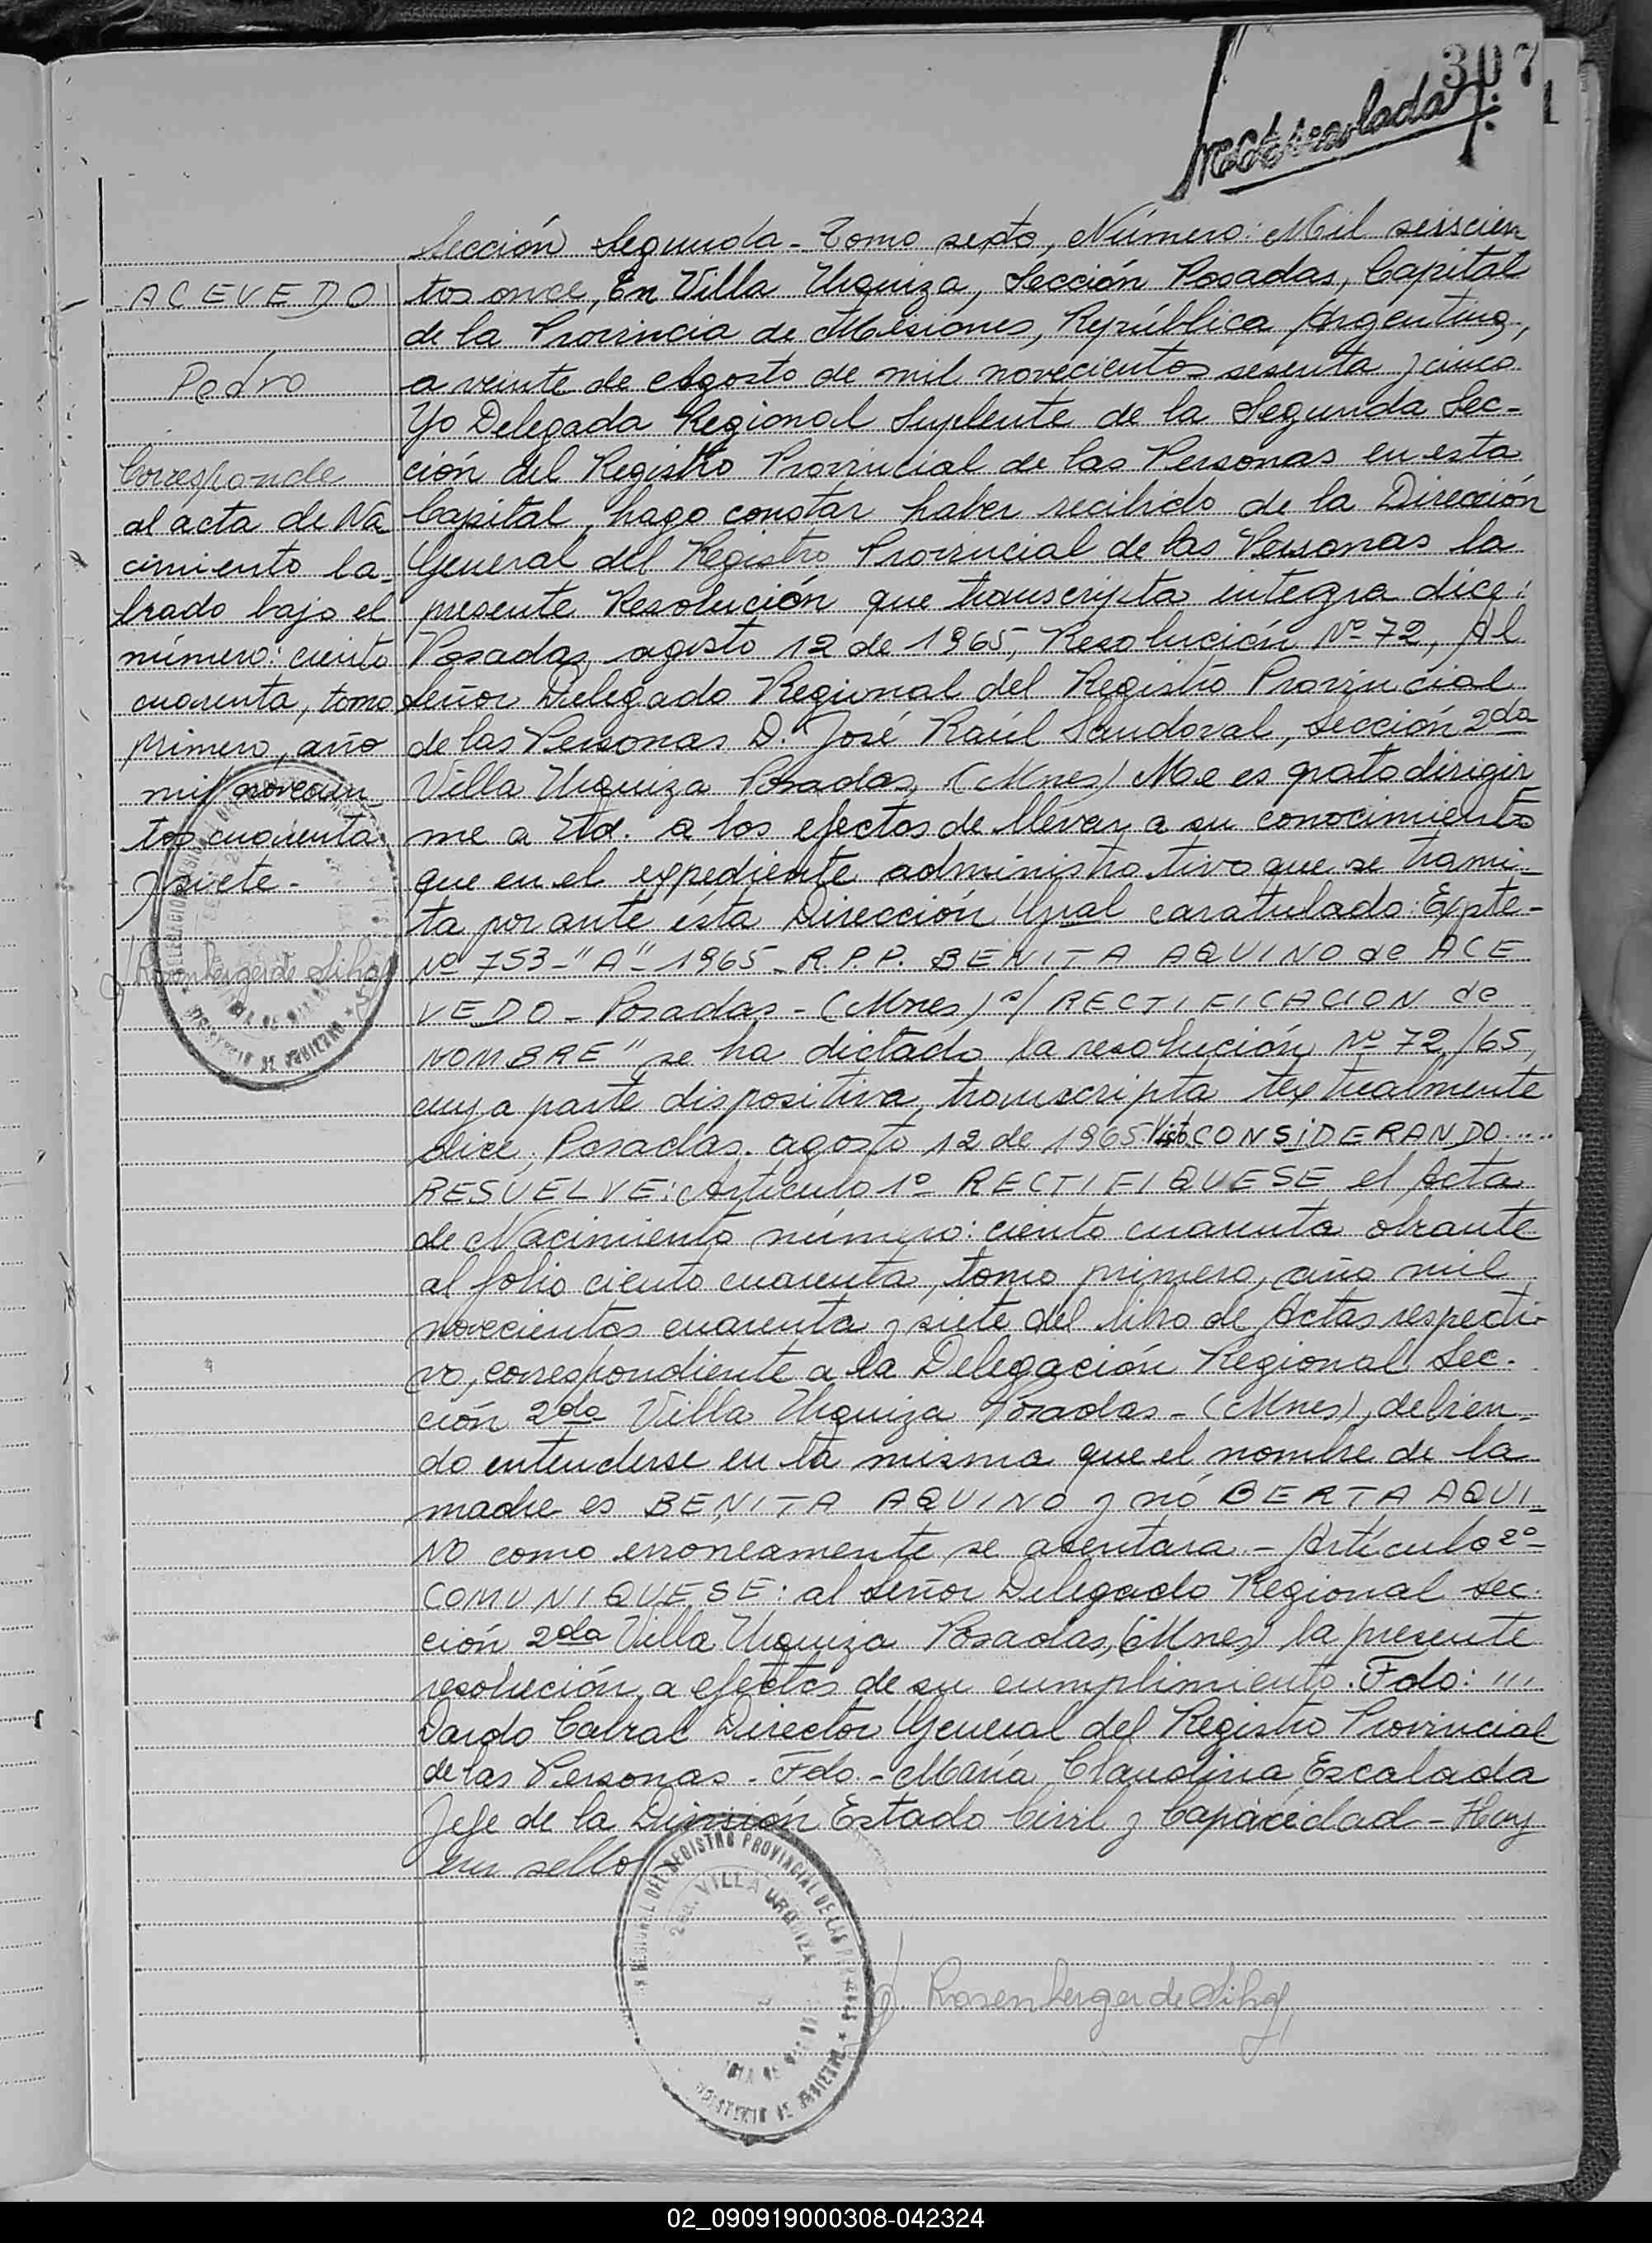 307
1
Sección Segunda - Tomo sexto, Número: Mil seiscien
tos once, En Villa Urquiza, Sección Posadas, Capital
de la Provincia de Misiones, República Argentina,
a veinte de Agosto de mil novecientos sesenta y cinco
Yo Delegada Regional Suplente de la Segunda Sec-
ción del Registro Provincial de las Personas en esta
Capital, hago constar haber recibido de la Dirección
General del Registro Provincial de las Personas la
presente Resolución que transcripta integra dice:
Posadas, agosto 12 de 1965, Resolución Nº 72, Al
Señor Delegado Regional del Registro Provincial
de las Personas D. José Raúl Sandoval, Sección 2da
Villa Urquiza Posadas, (Mnes) Me es grato dirigir
me a Ud. a los efectos de llevar a su conocimiento
que en el expediente administrativo que se trami-
ta por ante ésta Dirección Gral caratulado: Expte-
Nº 753-"A"-1965-R.P.P. BENITA AQUINO de ACE
VEDO - Posadas - (Mnes) s/ RECTIFICACION de
NOMBRE" se ha dictado la resolución Nº 72/65,
cuya parte dispositiva, transcripta textualmente
dice: Posadas. agosto 12 de 1965 Visto CONSIDERANDO....
RESUELVE: Artículo 1º RECTIFIQUESE el Acta
de Nacimiento número: ciento cuarenta obrante
al folio ciento cuarenta, tomo primero, año mil
novecientos cuarenta y siete del libro de Actas respecti-
vo, correspondiente a la Delegación Regional Sec-
ción 2da Villa Urquiza Posadas - (Mnes), debien-
do entenderse en la misma que el nombre de la
madre es BENITA AQUINO y nó BERTA AQUI-
NO como erroneamente se asentara - Artículo 2º-
COMUNIQUESE: al Señor Delegado Regional Sec-
ción 2da Villa Urquiza Posadas, (Mnes) la presente
resolución, a efectos de su cumplimiento. Fdo: """
Dardo Cabral Director General del Registro Provincial
de las Personas. Fdo - María Claudina Escalada
Jefe de la División Estado Civil y Capacidad - Hay
un sello
ACEVEDO
Pedro
Corresponde
al acta de Na
cimiento la-
brado bajo el
número: ciento
cuarenta, tomo
primero, año
mil novecien
tos cuarenta
y siete.
Rosenberger de Silva
REGIONAL DEL REGISTRO PROVINCIAL DE LAS PERSONAS
2da. VILLA URQUIZA
MINISTERIO DE GOBIERNO
Rosenberger de Silva
02_090919000308-042324